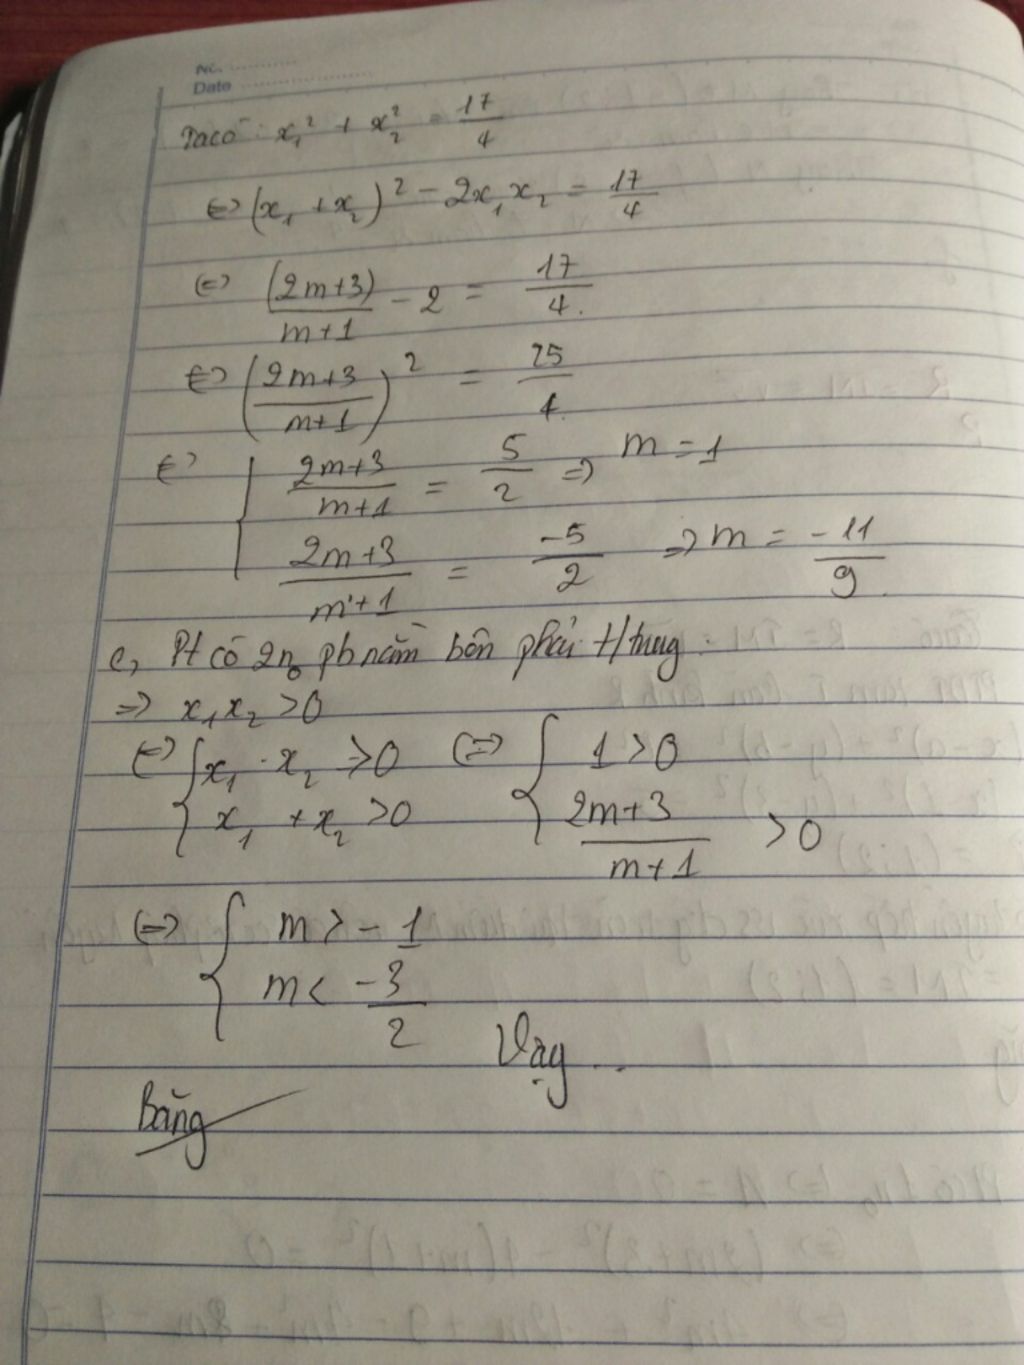 No. ..........
Date ..........
Ta có: x₁² + x₂² = 17/4
⇔ (x₁ + x₂)² − 2x₁x₂ = 17/4
⇔ (2m+3)/(m+1) − 2 = 17/4
⇔ ((2m+3)/(m+1))² = 25/4
⇔ { (2m+3)/(m+1) = 5/2 ⇒ m = 1
(2m+3)/(m+1) = −5/2 ⇒ m = −11/9
c, Pt có 2n₀ pb nằm bên phải t/tung
⇒ x₁x₂ > 0
⇔ { x₁ . x₂ > 0 ⇔ { 1 > 0
x₁ + x₂ > 0 (2m+3)/(m+1) > 0
⇔ { m > −1
m < −3/2
Vậy ..
Bằng